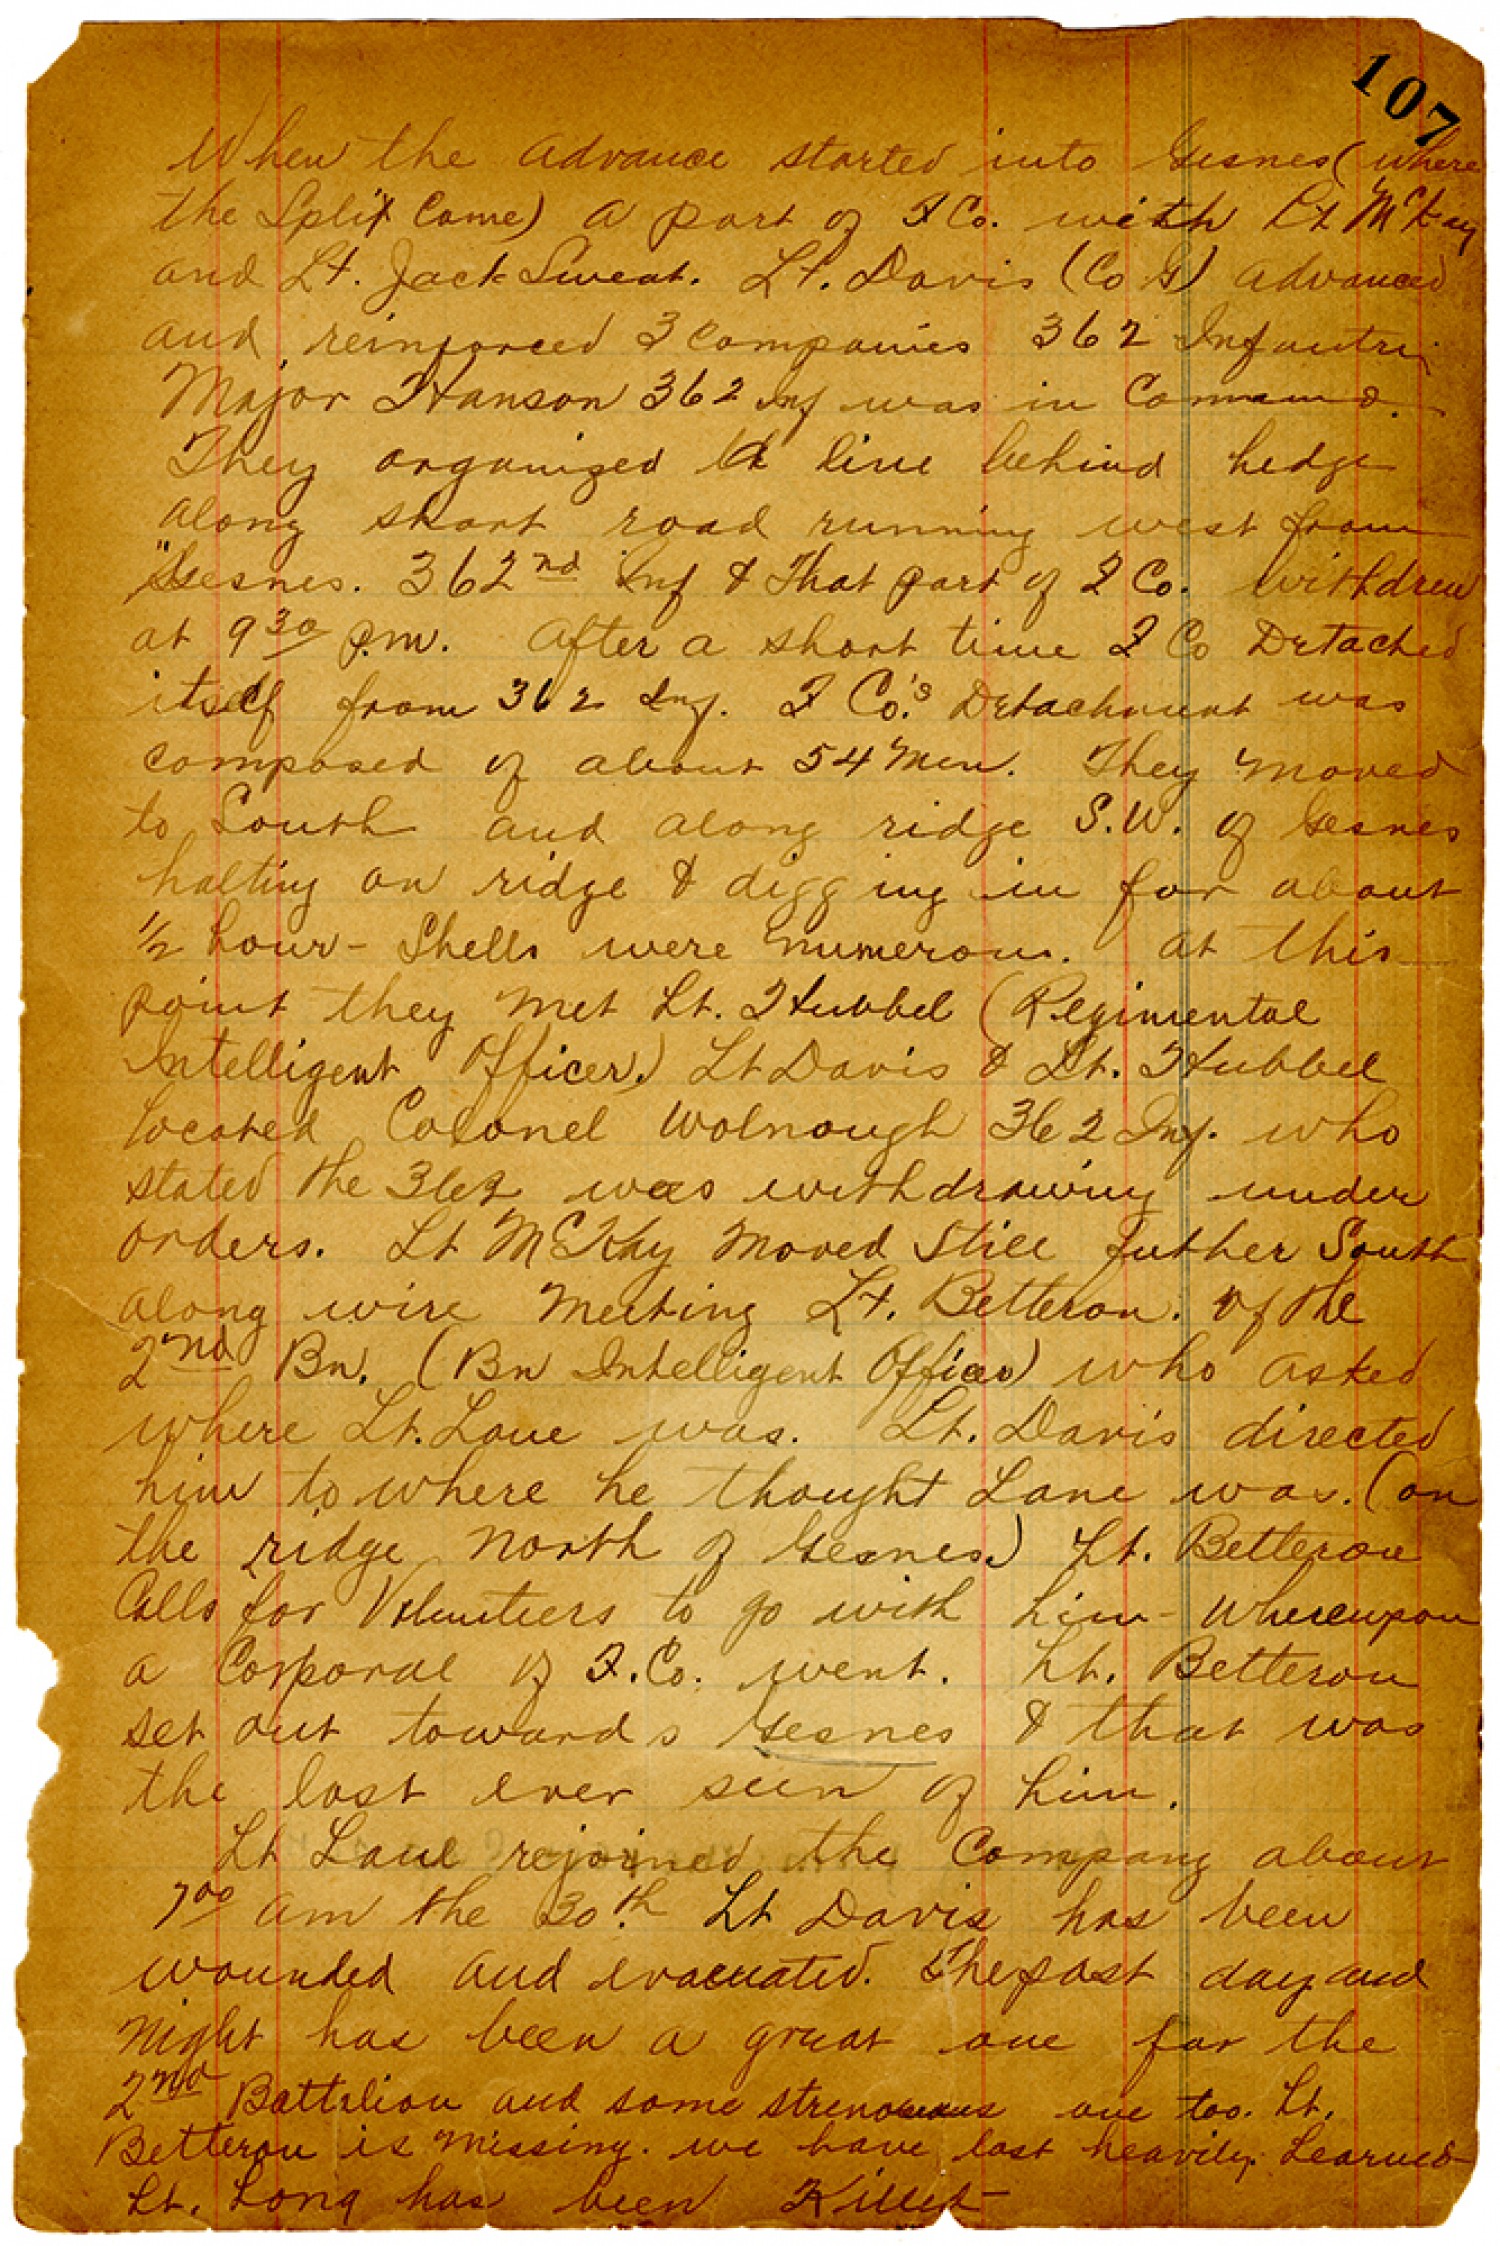 107
When the advance started into Gesnes (where
the Split Came) a part of F Co. with Lt McKay
and Lt. Jack Sweat. Lt. Davis (Co G) advanced
and reinforced 3 Companies 362 Infantry
Major Hanson 362 Inf was in Command.
They organized a line behind hedge
along short road running west from
Gesnes. 362nd Inf & That part of F Co. withdrew
at 9 30 P.M. After a short time F Co Detached
itself from 362 Inf. F Co's. Detachment was
composed of about 54 Men. They Moved
to South and along ridge S.W. of Gesnes
halting on ridge & digging in for about
1/2 hour - Shells were numerous. At this
point they Met Lt. Hubbel (Regimental
Intelligent Officer.) Lt Davis & Lt. Hubbel
located Colonel Wolnough 362 Inf. who
stated the 362 was withdrawing under
orders. Lt McKay Moved Still futher South
along wire Meeting Lt. Betteron. of the
2nd Bn. (Bn Intelligent Officer) who asked
where Lt. Lane was. Lt. Davis directed
him to where he thought Lane was. (on
the ridge North of Gesnes.) Lt. Betteron
Calls for Volunteers to go with him - Whereupon
a Corporal of F. Co. went. Lt. Betteron
set out towards Gesnes & that was
the last ever seen of him.
Lt Lane rejoined the Company about
7 00 am the 30th. Lt Davis has been
wounded and evacuated. The past day and
Night has been a great one for the
2nd Battalion and some strenous one too. Lt.
Betteron is Missing. We have lost heavily. Learned
Lt. Long has been Killed